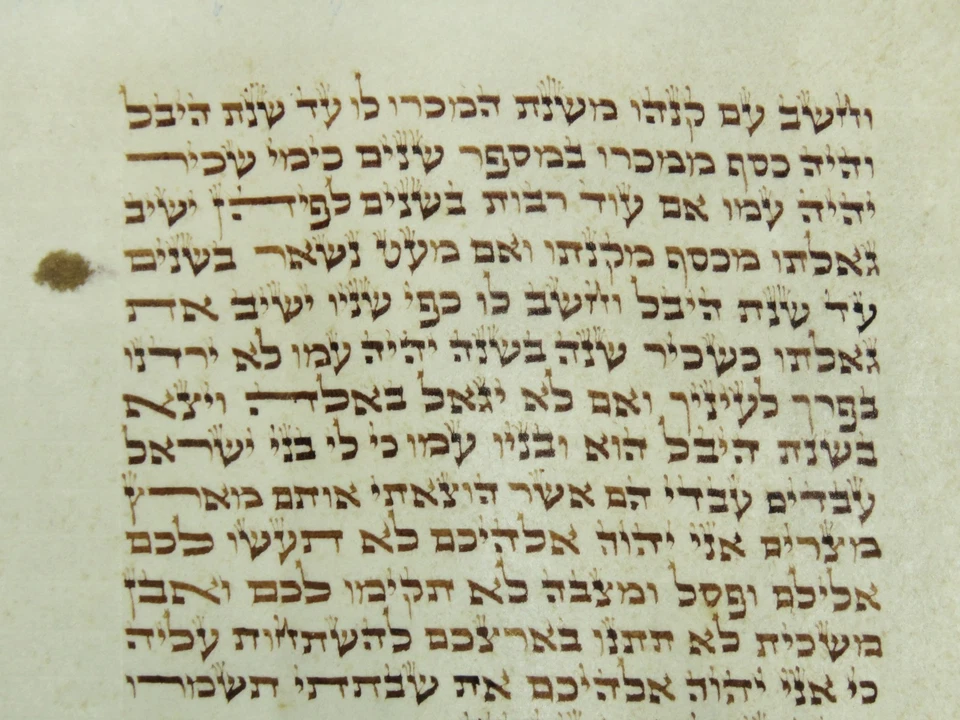 וחשב עם קנהו משנת המכרו לו עד שנת היבל
והיה כסף ממכרו במספר שנים כימי שכיר
יהיה עמו אם עוד רבות בשנים לפיהן ישיב
גאלתו מכסף מקנתו ואם מעט נשאר בשנים
עד שנת היבל וחשב לו כפי שניו ישיב את
גאלתו כשכיר שנה בשנה יהיה עמו לא ירדנו
בפרך לעיניך ואם לא יגאל באלה ויצא
בשנת היבל הוא ובניו עמו כי לי בני ישראל
עבדים עבדי הם אשר הוצאתי אותם מארץ
מצרים אני יהוה אלהיכם לא תעשו לכם
אלילם ופסל ומצבה לא תקימו לכם ואבן
משכית לא תתנו בארצכם להשתחות עליה
כי אני יהוה אלהיכם את שבתתי תשמרו